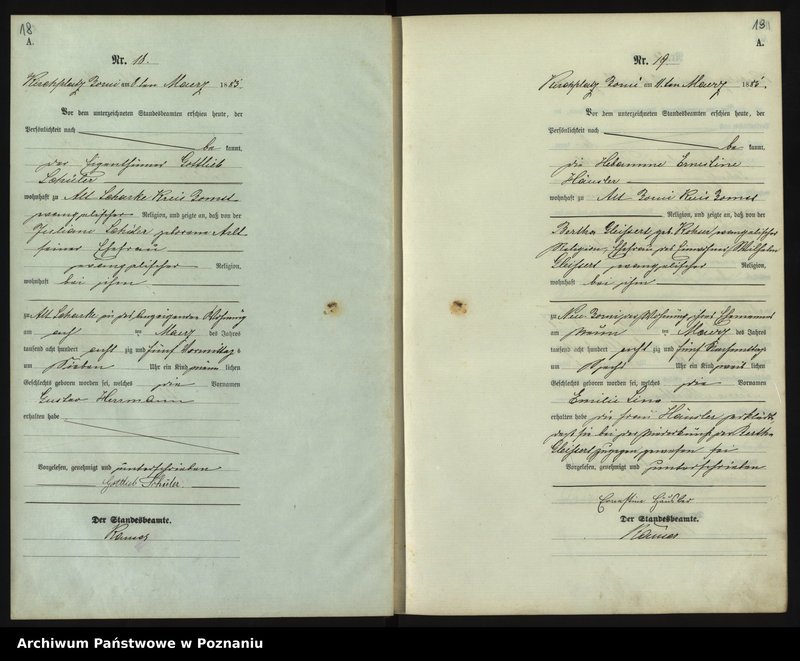 18
A.
Nr. 18.
Kirchplatz Bomst am 8 ten Maerz 1885.
Vor dem unterzeichneten Standesbeamten erschien heute, der
Persönlichkeit nach
be kannt,
der Eigenthümer Gottlieb
Schüler
wohnhaft zu Alt Scharke Kreis Bomst
evangelischer Religion, und zeigte an, daß von der
Juliane Schüler geborene Arlt
seiner Ehefrau
evangelischer Religion,
wohnhaft bei ihm
zu Alt Scharke in des Anzeigenden Wohnung
am acht ten Maerz des Jahres
tausend acht hundert acht zig und fünf Vormittags
um sieben Uhr ein Kind männ lichen
Geschlechts geboren worden sei, welches die Vornamen
Gustav Herrmann
erhalten habe
Vorgelesen, genehmigt und unterschrieben
Gottlieb Schüler
Der Standesbeamte.
19
A.
Nr. 19
Kirchplatz am ten Maerz 1885.
Vor dem unterzeichneten Standesbeamten erschien heute, der
Persönlichkeit nach
be kannt,
die Hebamme Ernestine
Häusler
wohnhaft zu Alt Kreis Bomst
Religion, und zeigte an, daß von der
Bertha Gleissert geb. evangelischer
Religion, Ehefrau des Wilhelm
Gleissert evangelischer Religion,
wohnhaft bei ihm
zu Neu Wohnung ihres Ehemannes
am neun ten Maerz des Jahres
tausend acht hundert acht zig und fünf Nachmittag
um sechs Uhr ein Kind weib lichen
Geschlechts geboren worden sei, welches die Vornamen
Emilie Lina
erhalten habe die Frau Häusler erklärte,
daß sie bei der Niederkunft der Bertha
Gleissert zugegen gewesen sei
Vorgelesen, genehmigt und unterschrieben
Ernestine Häusler
Der Standesbeamte.
Archiwum Państwowe w Poznaniu